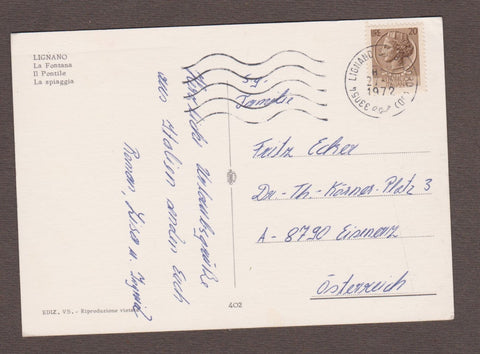 LIGNANO
La Fontana
Il Pontile
La spiaggia
Herzliche Urlaubsgrüße
aus Italien
Roman, Lisa u. Ingrid
EDIZ. V.S. - Riproduzione vietata
402
LIRE 20
LIGNANO
1972
33054
Familie
Fritz Ecker
Dr.-Th.-Körner-Platz 3
A-8790 Eisenerz
Österreich